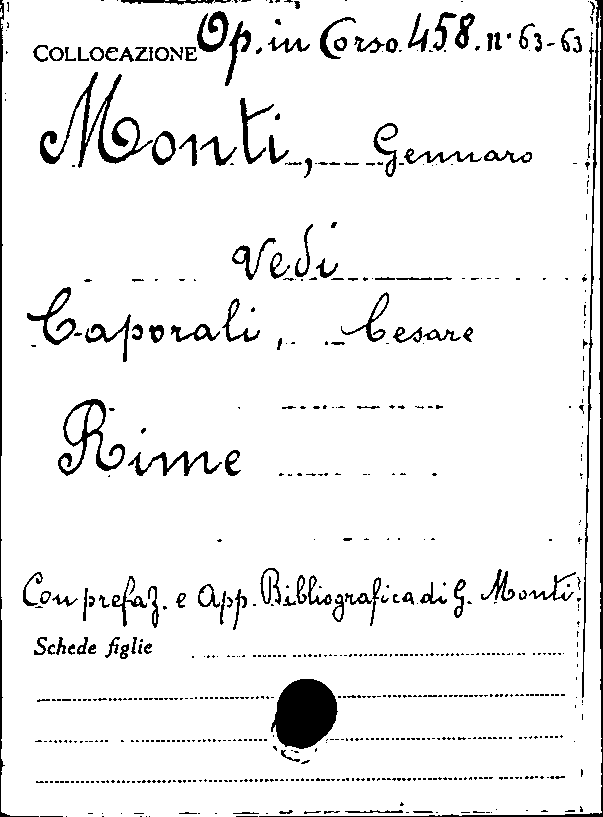 COLLOCAZIONE Op. in Corso 458. n. 63-63
Monti, Gennaro
Vedi
Caporali, Cesare
Rime
Con prefaz. e App. Bibliografica di G. Monti.
Schede figlie